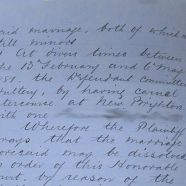 said marriage, both of which a
still minors
At divers times between
the 13th February and 6th May
the Defendant committed
by having carnal
intercourse at New Brighton
with one
Wherefore the Plaintiff
prays that the marriage
aforesaid may be dissolved
order of this Honorable
by reason of the